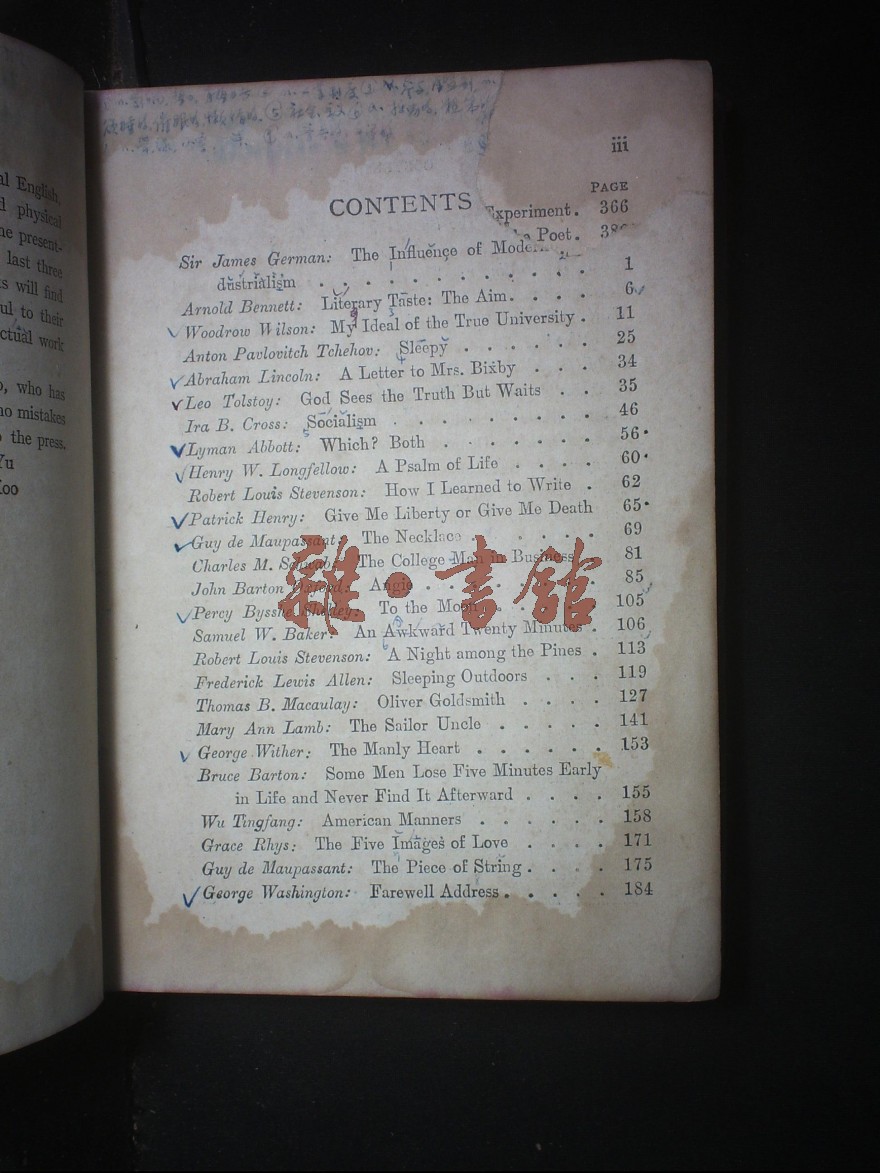 al English,
d physical
he present-
last three
ts will find
ul to their
ctual work
, who has
no mistakes
the press.
iii
PAGE
CONTENTS
Experiment. 366
Poet.
Sir James German: The Influence of Modern
dustrialism . . . . . . . . . . . 1
Arnold Bennett: Literary Taste: The Aim. . . . 6
Woodrow Wilson: My Ideal of the True University . 11
Anton Pavlovitch Tchehov: Sleepy . . . . . . 25
Abraham Lincoln: A Letter to Mrs. Bixby . . . 34
Leo Tolstoy: God Sees the Truth But Waits . . 35
Ira B. Cross: Socialism . . . . . . . . . 46
Lyman Abbott: Which? Both . . . . . . . 56
Henry W. Longfellow: A Psalm of Life . . . . 60
Robert Louis Stevenson: How I Learned to Write . 62
Patrick Henry: Give Me Liberty or Give Me Death 65
Guy de Maupassant: The Necklace . . . . . 69
Charles M. Schwab: The College Man in Business 81
John Barton Angie . . . . . . . 85
Percy Bysshe Shelley: To the Moon . . . . . 105
Samuel W. Baker: An Awkward Twenty Minutes . 106
Robert Louis Stevenson: A Night among the Pines . 113
Frederick Lewis Allen: Sleeping Outdoors . . . 119
Thomas B. Macaulay: Oliver Goldsmith . . . . 127
Mary Ann Lamb: The Sailor Uncle . . . . . 141
George Wither: The Manly Heart . . . . . . 153
Bruce Barton: Some Men Lose Five Minutes Early
in Life and Never Find It Afterward . . . . 155
Wu Tingfang: American Manners . . . . . . 158
Grace Rhys: The Five Images of Love . . . . 171
Guy de Maupassant: The Piece of String . . . . 175
George Washington: Farewell Address . . . . . 184
雜·書館